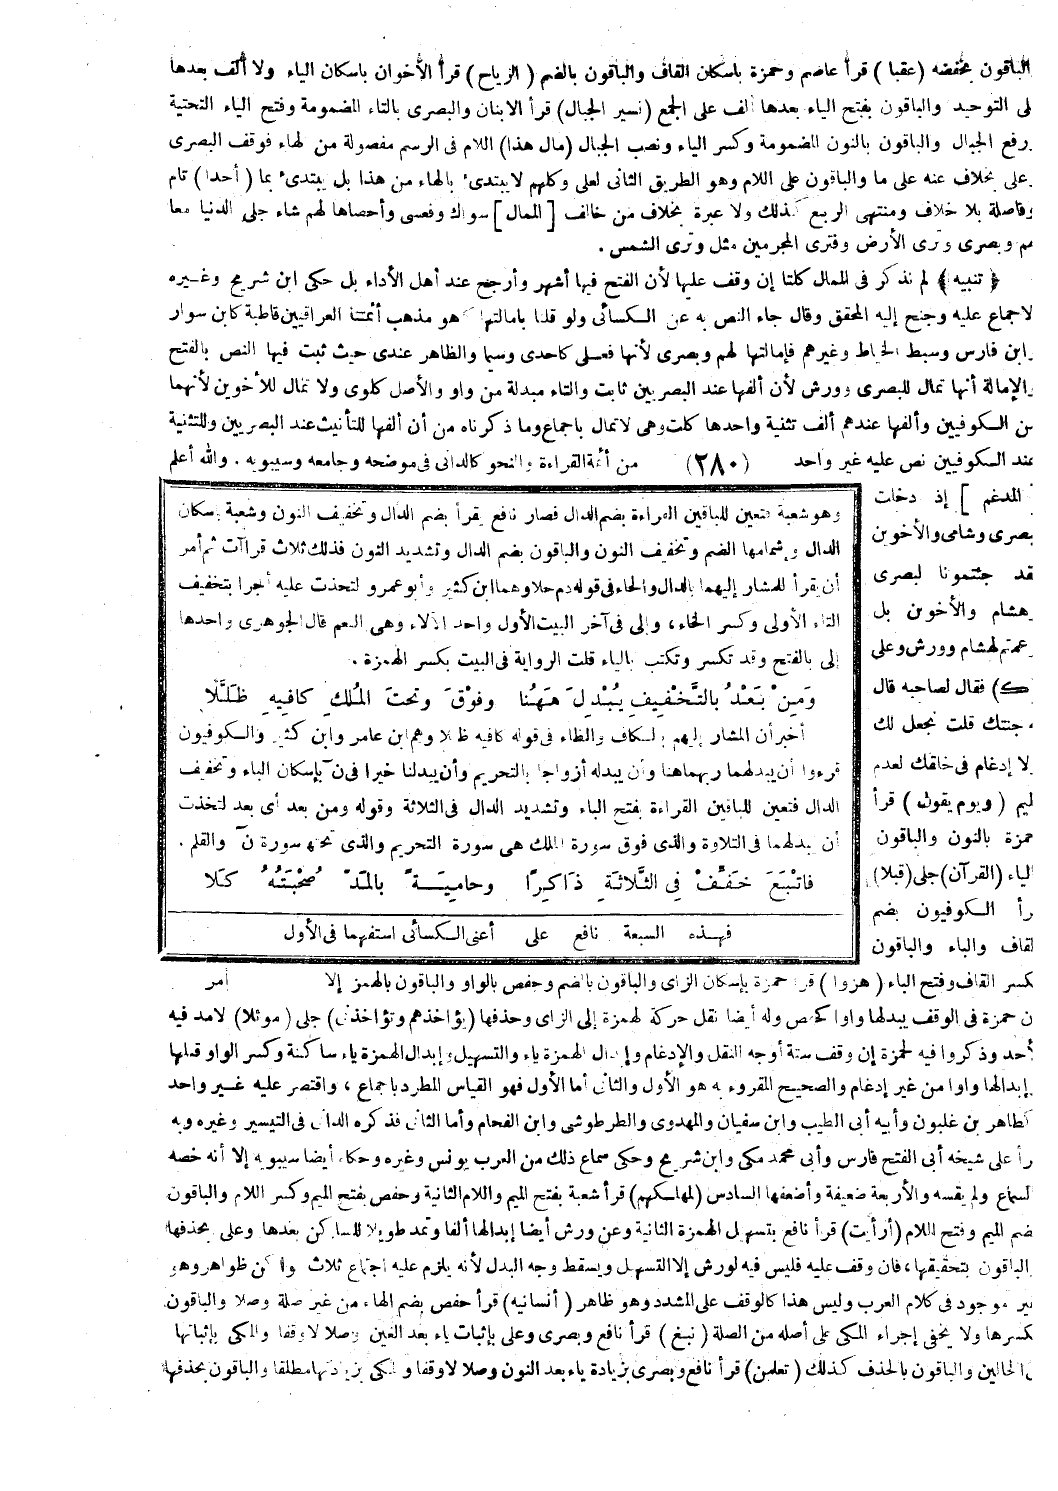 الباقون بخفضه (عقبا) قرأ عاصم وحمزة باسكان القاف والباقون بالضم (الرياح) قرأ الأخوان باسكان الياء ولا ألف بعدها
لى التوحيد والباقون بفتح الياء بعدها ألف على الجمع (نسير الجبال) قرأ الابنان والبصرى بالتاء المضمومة وفتح الياء التحتية
رفع الجبال والباقون بالنون المضمومة وكسر الياء ونصب الجبال (مال هذا) اللام فى الرسم مفصولة من لهاء فوقف البصرى
وعلى بخلاف عنه على ما والباقون على اللام وهو الطريق الثانى لعلى وكلهم لايبتدئ بالهاء من هذا بل يبتدئ بما (أحدا) تام
وفاصلة بلا خلاف ومنتهى الربع كذلك ولا عبرة بخلاف من خالف [الممال] سواك وفعسى وأحصاها لهم شاء جلى الدنيا معا
هم وبصرى وترى الأرض وفترى المجرمين مثل وترى الشمس .
﴿ تنبيه ﴾ لم نذكر فى الممال كلتا إن وقف عليها لأن الفتح فيها أشهر وأرجح عند أهل الأداء بل حكى ابن شريح وغيره
لاجماع عليه وجنح إليه المحقق وقال جاء النص به عن الكسائى ولو قلنا بامالتها كهو مذهب أئمتنا العراقيين قاطبة كابن سوار
وابن فارس وسبط الخياط وغيرهم فإمالتها لهم وبصرى لأنها فعلى كاحدى وسيما والظاهر عندى حيث ثبت فيها النص بالفتح
والإمالة أنها تمال للبصرى وورش لأن ألفها عند البصريين ثابت والتاء مبدلة من واو والأصل كلوى ولا تمال للأخوين لأنهما
من الكوفيين وألفها عندهم ألف تثنية واحدها كلت وهى لاتمال باجماع وما ذكرناه من أن ألفها للتأنيث عند البصريين وللتثنية
عند الكوفيين نص عليه غير واحد (٢٨٠) من أئمة القراءة والنحو كالدانى فى موضحه وجامعه وسيبويه . والله أعلم
[المدغم] إذ دخلت
بصرى وشامى والأخوين
قد جئتمونا لبصرى
هشام والأخوين بل
زعمتم لهشام وورش وعلى
(ك) فقال لصاحبه قال
جنتك قلت نجعل لك
لا إدغام فى خلقك لعدم
الميم (ويوم يقول) قرأ
حمزة بالنون والباقون
الياء (القرآن) جلى (قبلا)
قرأ الكوفيون بضم
القاف والباء والباقون
وهو شعبة فتعين للباقين القراءة بضم الدال فصار نافع يقرأ بضم الدال وتخفيف النون وشعبة باسكان
الدال وإشمامها الضم وتخفيف النون والباقون بضم الدال وتشديد النون فذلك ثلاث قراآت ثم أمر
أن يقرأ للمشار إليهما بالدال والحاء فى قوله دم حلا وهما ابن كثير وأبو عمرو لتخذت عليه أجرا بتخفيف
التاء الأولى وكسر الخاء، وإلى فى آخر البيت الأول واحد الآلاء وهى النعم قال الجوهرى واحدها
إلى بالفتح وقد تكسر وتكتب بالياء قلت الرواية فى البيت بكسر الهمزة .
وَمِنْ بَعْدُ بالتَّخْفِيفِ يُبْدِلَ هَهُنا وفَوْقَ وتحتَ المُلكِ كافيهِ ظَلَّلَا
أخبر أن المشار إليهم بالكاف والظاء فى قوله كافيه ظللا وهم ابن عامر وابن كثير والكوفيون
قرءوا أن يبدلهما ربهما هنا وأن يبدله أزواجا بالتحريم وأن يبدلنا خيرا فى نٓ بإسكان الباء وتخفيف
الدال فتعين للباقين القراءة بفتح الباء وتشديد الدال فى الثلاثة وقوله ومن بعد أى بعد لتخذت
أن يبدلهما فى التلاوة والذى فوق سورة الملك هى سورة التحريم والذى تحتها سورة نٓ والقلم .
فاتْبَعَ خَفِّفْ فِي الثَّلاثَةِ ذَاكِرًا وحامِيَةً بالمَدّ صُحْبَتُهُ كَلَا
فهذه السبعة نافع على أعنى الكسائى استفهما فى الأول
بكسر القاف وفتح الباء (هزوا) قرأ حمزة بإسكان الزاى والباقون بالضم وحفص بالواو والباقون بالهمز إلا أمر
ن حمزة فى الوقف يبدلها واوا كحفص وله أيضا نقل حركة لهمزة إلى الزاى وحذفها (يؤاخذهم وتؤاخذنى) جلى (موئلا) لامد فيه
أحد وذكروا فيه لحمزة إن وقف ستة أوجه النقل والإدغام وإبدال الهمزة ياء والتسهيل وإبدال الهمزة ياء ساكنة وكسر الواو قبلها
إبدالها واوا من غير إدغام والصحيح المقروء به هو الأول والثانى أما الأول فهو القياس المطرد باجماع ، واقتصر عليه غير واحد
كطاهر بن غلبون وأبيه أبى الطيب وابن سفيان والمهدوى والطرطوشى وابن الفحام وأما الثانى فذكره الدانى فى التيسير وغيره وبه
قرأ على شيخه أبى الفتح فارس وأبى محمد مكى وابن شريح وحكى سماع ذلك من العرب يونس وغيره وحكاه أيضا سيبويه إلا أنه خصه
السماع ولم يقسه والأربعة ضعيفة وأضعفها السادس (لمهلكهم) قرأ شعبة بفتح الميم واللام الثانية وحفص بفتح الميم وكسر اللام والباقون
ضم الميم وفتح اللام (أرأيت) قرأ نافع بتسهيل الهمزة الثانية وعن ورش أيضا إبدالها ألفا وتمد طويلا للساكن بعدها وعلى بحذفها
والباقون بتحقيقها ، فان وقف عليه فليس فيه لورش إلا التسهيل ويسقط وجه البدل لأنه يلزم عليه اجتماع ثلاث سواكن ظواهر وهو
غير موجود فى كلام العرب وليس هذا كالوقف على المشدد وهو ظاهر (أنسانيه) قرأ حفص بضم الهاء من غير صلة وصلا والباقون
بكسرها ولا يخفى إجراء المكى على أصله من الصلة (نبغ) قرأ نافع وبصرى وعلى بإثبات ياء بعد الغين وصلا لاوقفا والمكى بإثباتها
فى الحالين والباقون بالحذف كذلك (تعلمن) قرأ نافع وبصرى بزيادة ياء بعد النون وصلا لاوقفا والمكى بزيادتها مطلقا والباقون بحذفها